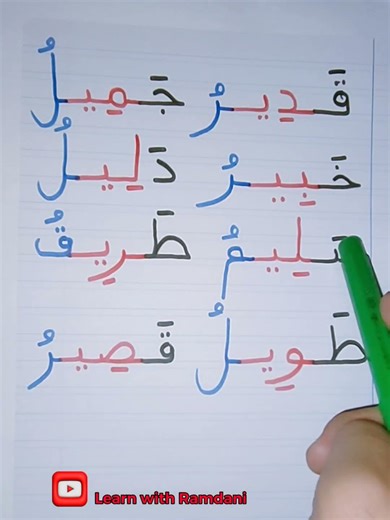 قَدِيرُ جَمِيلُ
خَبِيرُ دَلِيلُ
طَرِيقُ
طَوِيلُ قَصِيرُ
Learn with Ramdani